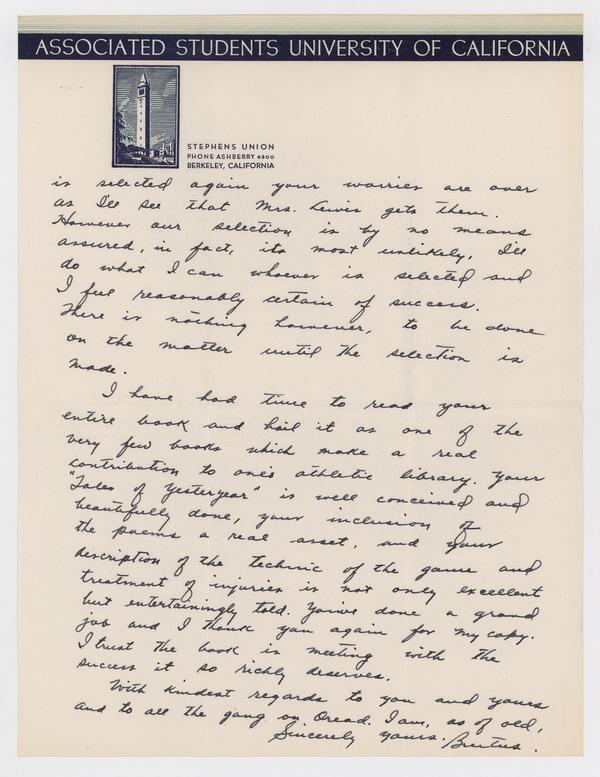 ASSOCIATED STUDENTS UNIVERSITY OF CALIFORNIA
STEPHENS UNION
PHONE ASHBERRY 4800
BERKELEY, CALIFORNIA
is selected again your worries are over
as I'll see that Mrs. Lewis gets them.
However our selection is by no means
assured, in fact, its most unlikely, I'll
do what I can whoever is selected and
I feel reasonably certain of success.
There is nothing however, to be done
on the matter until the selection is
made.
I have had time to read your
entire book and hail it as one of the
very few books which make a real
contribution to one's athletic library. Your
"Tales of Yesteryear" is well conceived and
beautifully done, your inclusion of
the poems a real asset, and your
description of the technic of the game and
treatment of injuries is not only excellent
but entertainingly told. You've done a grand
job and I thank you again for my copy.
I trust the book is meeting with the
success it so richly deserves.
With kindest regards to you and yours
and to all the gang on Oread. I am, as of old,
Sincerely yours. Brutus.